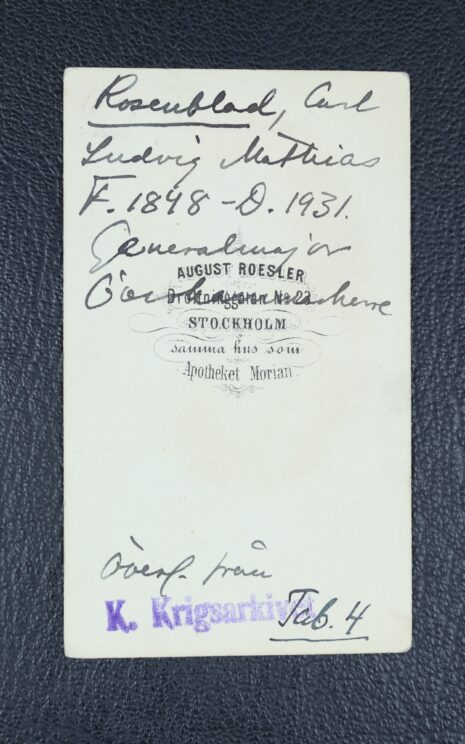 Rosenblad, Carl
Ludvig Mathias
F. 1848 - D. 1931.
Generalmajor
AUGUST ROESLER
Drottninggatan No 23
STOCKHOLM
samma hus som
Apotheket Morian
överl. från
K. Krigsarkivet
Tab. 4